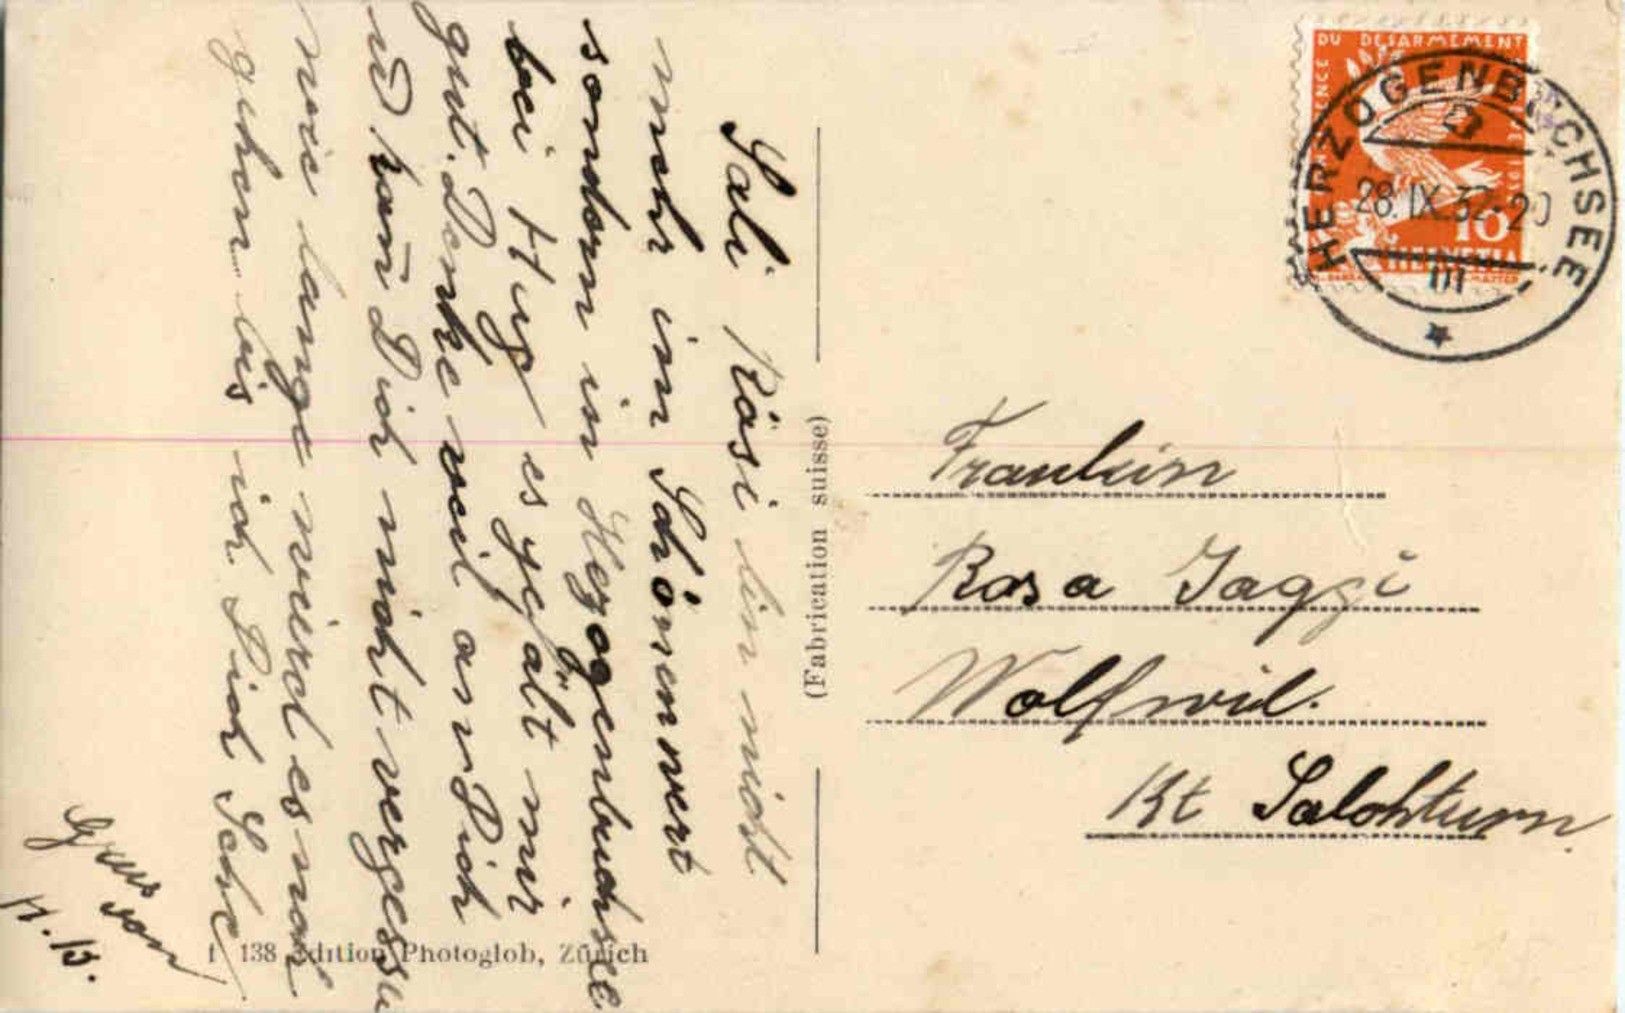 Sali Rösi bin nicht
mehr im Schönenwert
sondern in Herzogenbuchsee
bei Hug es gefält mir
gut. Denke weil an Dich
u kam Dich nicht vergessen
wie lange würd es noch
gehen bis ich Dich Sehe
Gruss von
H. B.
(Fabrication suisse)
138 Edition Photoglob, Zürich
CONFERENCE DU DESARMEMENT
10
HELVETIA
HERZOGENBUCHSEE
28.IX.32-20
Fraulein
Rosa Jaggi
Wolfwil.
Kt Solohturn.